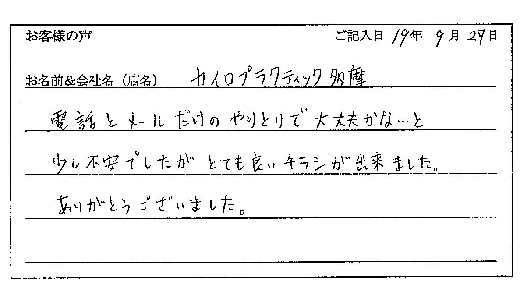 お客様の声
ご記入日 19年 9月 29日
お名前&会社名（店名） カイロプラクティック多摩
電話とメールだけのやりとりで大丈夫かな…と
少し不安でしたがとても良いチラシが出来ました。
ありがとうございました。